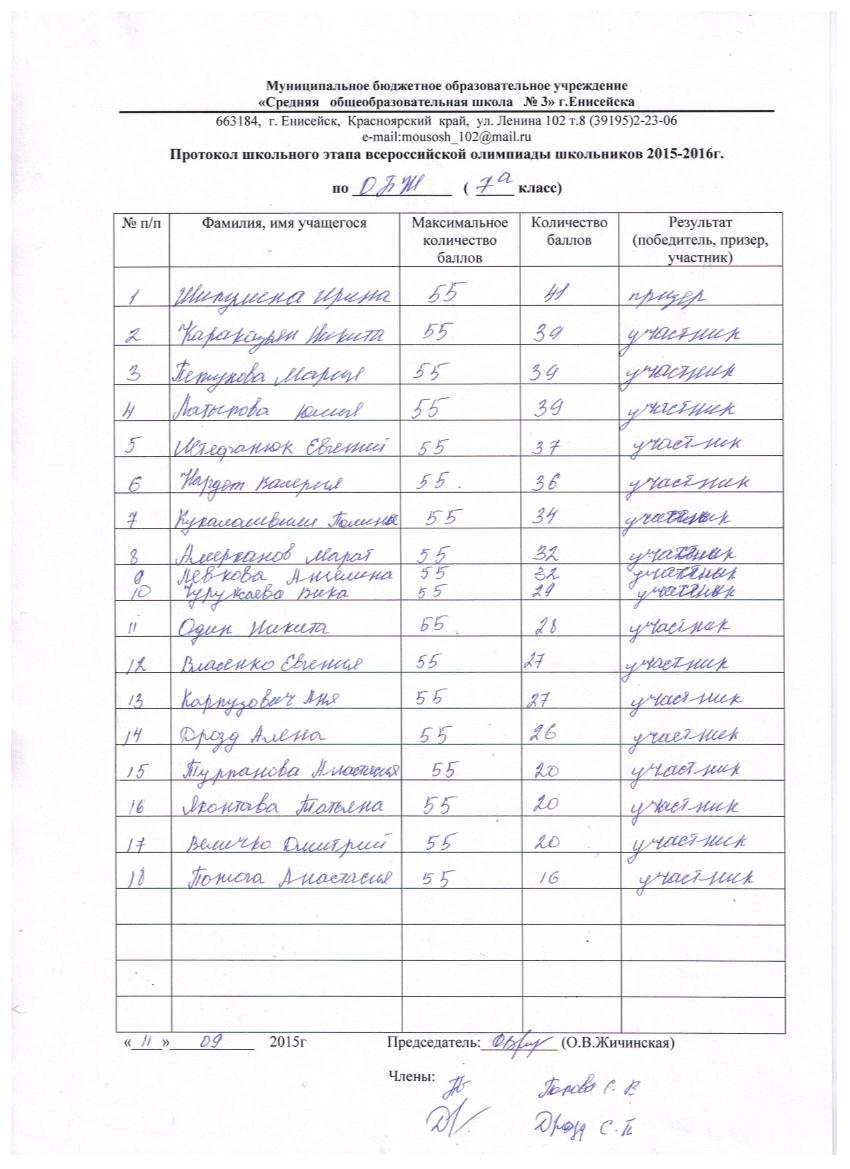 Муниципальное бюджетное образовательное учреждение
«Средняя общеобразовательная школа № 3» г.Енисейска
663184, г. Енисейск, Красноярский край, ул. Ленина 102 т.8 (39195)2-23-06
e-mail:mousosh_102@mail.ru
Протокол школьного этапа всероссийской олимпиады школьников 2015-2016г.
по ОБЖ ( 7а класс)
№ п/п Фамилия, имя учащегося Максимальное количество баллов Количество баллов Результат (победитель, призер, участник)
1 Ирина 55 41 призер
2 Никита 55 39 участник
3 Петухова Мария 55 39 участник
4 Латыпова Юлия 55 39 участник
5 Штефанюк Евгений 55 37 участник
6 Валерия 55 36 участник
7 Полина 55 34 участник
8 Марат 55 32 участник
9 Левкова Ангелина 55 32 участник
10 Вика 55 29 участник
11 Один Никита 55 28 участник
12 Власенко Евгения 55 27 участник
13 Карпузович Аня 55 27 участник
14 Дрозд Алена 55 26 участник
15 Турпанова Анастасия 55 20 участник
16 Татьяна 55 20 участник
17 Величко Дмитрий 55 20 участник
18 Анастасия 55 16 участник
« 11 » 09 2015г Председатель: (О.В.Жичинская)
Члены:
Попова С. В
Дрозд С. П